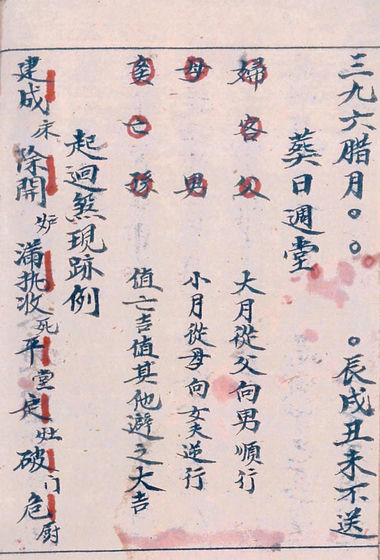 三九六腊月。。 。辰戌丑未不送
葬日週堂
婦客父 大月從父向男順行
母男 小月從母向女夫逆行
亡孫 值亡吉值其他避之大吉
起迴煞現跡例
建成床除開炉滿执收死平堂定灶破门危厨